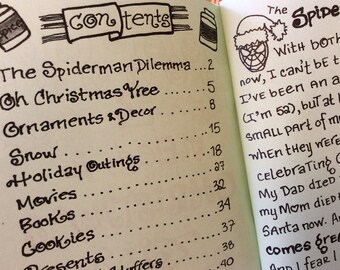 Contents
The Spiderman Dilemma ... 2
Oh Christmas Tree ........ 5
Ornaments & Decor ....... 8
Snow .................. 15
Holiday Outings ........ 18
Movies ................
Books ................. 32
Cookies ............... 34
Presents .............. 37
Stuffers ........ 38
40
The SPIDER
With both
now, I can't be t
I've been an a
(I'm 52), but at
small part of m
when they were
celebrating C
My Dad died
my Mom died
Santa now. An
comes grea
And I fear I